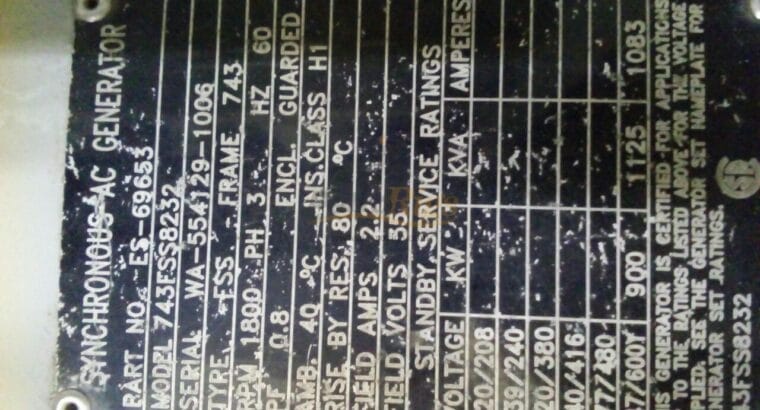 SYNCHRONOUS AC GENERATOR
PART NO. ES-69653
MODEL 743FSS8232
SERIAL WA-554129-1006
TYPE. FSS - FRAME 743
RPM 1800 PH 3 HZ 60
PF 0.8 ENCL GUARDED
AMB. 40 °C INS.CLASS H1
RISE BY RES. 80 °C
FIELD AMPS 2.2
FIELD VOLTS 35
STANDBY SERVICE RATINGS
VOLTAGE KW KVA AMPERES
20/208
39/240
20/380
40/416
77/480
47/600Y 900 1125 1083
IS GENERATOR IS CERTIFIED FOR APPLICATIONS
TO THE RATINGS LISTED ABOVE FOR THE VOLTAGE
PLIED. SEE THE GENERATOR SET NAMEPLATE FOR
NERATOR SET RATINGS.
43FSS8232